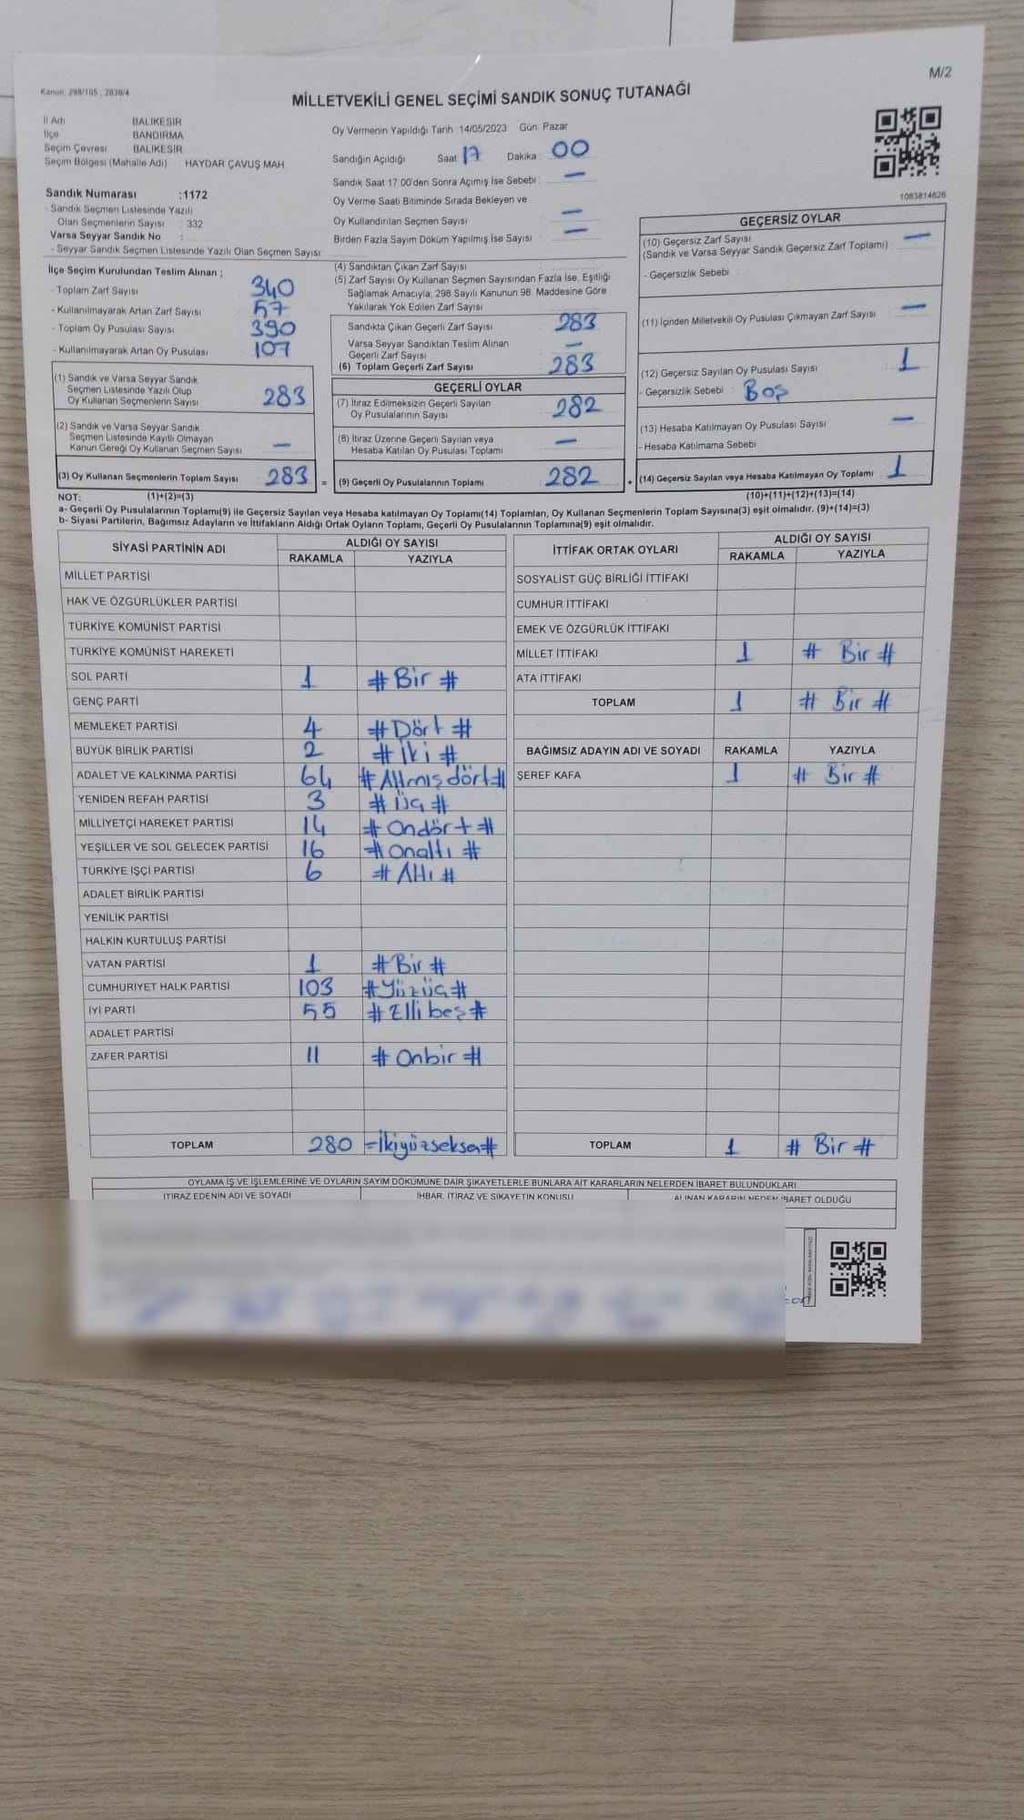 Kanun: 298/105 , 2839/4
M/2
MİLLETVEKİLİ GENEL SEÇİMİ SANDIK SONUÇ TUTANAĞI
İl Adı BALIKESİR
İlçe BANDIRMA
Seçim Çevresi BALIKESİR
Seçim Bölgesi (Mahalle Adı) HAYDAR ÇAVUŞ MAH
Sandık Numarası :1172
- Sandık Seçmen Listesinde Yazılı
Olan Seçmenlerin Sayısı : 332
Varsa Seyyar Sandık No :
- Seyyar Sandık Seçmen Listesinde Yazılı Olan Seçmen Sayısı:
Oy Vermenin Yapıldığı Tarih 14/05/2023 Gün Pazar
Sandığın Açıldığı Saat 17 Dakika 00
Sandık Saat 17.00'den Sonra Açımış İse Sebebi : —
Oy Verme Saati Bitiminde Sırada Bekleyen ve
Oy Kullandırılan Seçmen Sayısı —
Birden Fazla Sayım Döküm Yapılmış İse Sayısı —
1083814626
İlçe Seçim Kurulundan Teslim Alınan ;
- Toplam Zarf Sayısı 340
- Kullanılmayarak Artan Zarf Sayısı 57
- Toplam Oy Pusulası Sayısı 390
- Kullanılmayarak Artan Oy Pusulası 107
(1) Sandık ve Varsa Seyyar Sandık
Seçmen Listesinde Yazılı Olup
Oy Kullanan Seçmenlerin Sayısı 283
(2) Sandık ve Varsa Seyyar Sandık
Seçmen Listesinde Kayıtlı Olmayan
Kanun Gereği Oy Kullanan Seçmen Sayısı —
(3) Oy Kullanan Seçmenlerin Toplam Sayısı 283 =
(4) Sandıktan Çıkan Zarf Sayısı
(5) Zarf Sayısı Oy Kullanan Seçmen Sayısından Fazla İse, Eşitliği
Sağlamak Amacıyla, 298 Sayılı Kanunun 98. Maddesine Göre
Yakılarak Yok Edilen Zarf Sayısı
Sandıkta Çıkan Geçerli Zarf Sayısı 283
Varsa Seyyar Sandıktan Teslim Alınan
Geçerli Zarf Sayısı —
(6) Toplam Geçerli Zarf Sayısı 283
GEÇERLİ OYLAR
(7) İtiraz Edilmeksizin Geçerli Sayılan
Oy Pusulalarının Sayısı 282
(8) İtiraz Üzerine Geçerli Sayılan veya
Hesaba Katılan Oy Pusulası Toplamı —
(9) Geçerli Oy Pusulalarının Toplamı 282 +
GEÇERSİZ OYLAR
(10) Geçersiz Zarf Sayısı —
(Sandık ve Varsa Seyyar Sandık Geçersiz Zarf Toplamı)
- Geçersizlik Sebebi
(11) İçinden Milletvekili Oy Pusulası Çıkmayan Zarf Sayısı —
(12) Geçersiz Sayılan Oy Pusulası Sayısı 1
- Geçersizlik Sebebi : Boş
(13) Hesaba Katılmayan Oy Pusulası Sayısı —
- Hesaba Katılmama Sebebi
(14) Geçersiz Sayılan veya Hesaba Katılmayan Oy Toplamı 1
NOT: (1)+(2)=(3) (10)+(11)+(12)+(13)=(14)
a- Geçerli Oy Pusulalarının Toplamı(9) ile Geçersiz Sayılan veya Hesaba katılmayan Oy Toplamı(14) Toplamları, Oy Kullanan Seçmenlerin Toplam Sayısına(3) eşit olmalıdır. (9)+(14)=(3)
b- Siyasi Partilerin, Bağımsız Adayların ve İttifakların Aldığı Ortak Oyların Toplamı, Geçerli Oy Pusulalarının Toplamına(9) eşit olmalıdır.
SİYASİ PARTİNİN ADI ALDIĞI OY SAYISI
RAKAMLA YAZIYLA
MİLLET PARTİSİ
HAK VE ÖZGÜRLÜKLER PARTİSİ
TÜRKİYE KOMÜNİST PARTİSİ
TÜRKİYE KOMÜNİST HAREKETİ
SOL PARTİ 1 # Bir #
GENÇ PARTİ
MEMLEKET PARTİSİ 4 # Dört #
BÜYÜK BİRLİK PARTİSİ 2 # İki #
ADALET VE KALKINMA PARTİSİ 64 # Altmışdört #
YENİDEN REFAH PARTİSİ 3 # Üç #
MİLLİYETÇİ HAREKET PARTİSİ 14 # Ondört #
YEŞİLLER VE SOL GELECEK PARTİSİ 16 # Onaltı #
TÜRKİYE İŞÇİ PARTİSİ 6 # Altı #
ADALET BİRLİK PARTİSİ
YENİLİK PARTİSİ
HALKIN KURTULUŞ PARTİSİ
VATAN PARTİSİ 1 # Bir #
CUMHURİYET HALK PARTİSİ 103 # Yüzüç #
İYİ PARTİ 55 # Elli beş #
ADALET PARTİSİ
ZAFER PARTİSİ 11 # Onbir #
TOPLAM 280 =İkiyüzseksen#
İTTİFAK ORTAK OYLARI ALDIĞI OY SAYISI
RAKAMLA YAZIYLA
SOSYALİST GÜÇ BİRLİĞİ İTTİFAKI
CUMHUR İTTİFAKI
EMEK VE ÖZGÜRLÜK İTTİFAKI
MİLLET İTTİFAKI 1 # Bir #
ATA İTTİFAKI
TOPLAM 1 # Bir #
BAĞIMSIZ ADAYIN ADI VE SOYADI RAKAMLA YAZIYLA
ŞEREF KAFA 1 # Bir #
TOPLAM 1 # Bir #
OYLAMA İŞ VE İŞLEMLERİNE VE OYLARIN SAYIM DÖKÜMÜNE DAİR ŞİKAYETLERLE BUNLARA AİT KARARLARIN NELERDEN İBARET BULUNDUKLARI
İTİRAZ EDENİN ADI VE SOYADI İHBAR, İTİRAZ VE ŞİKAYETİN KONUSU ALINAN KARARIN NEDEN İBARET OLDUĞU